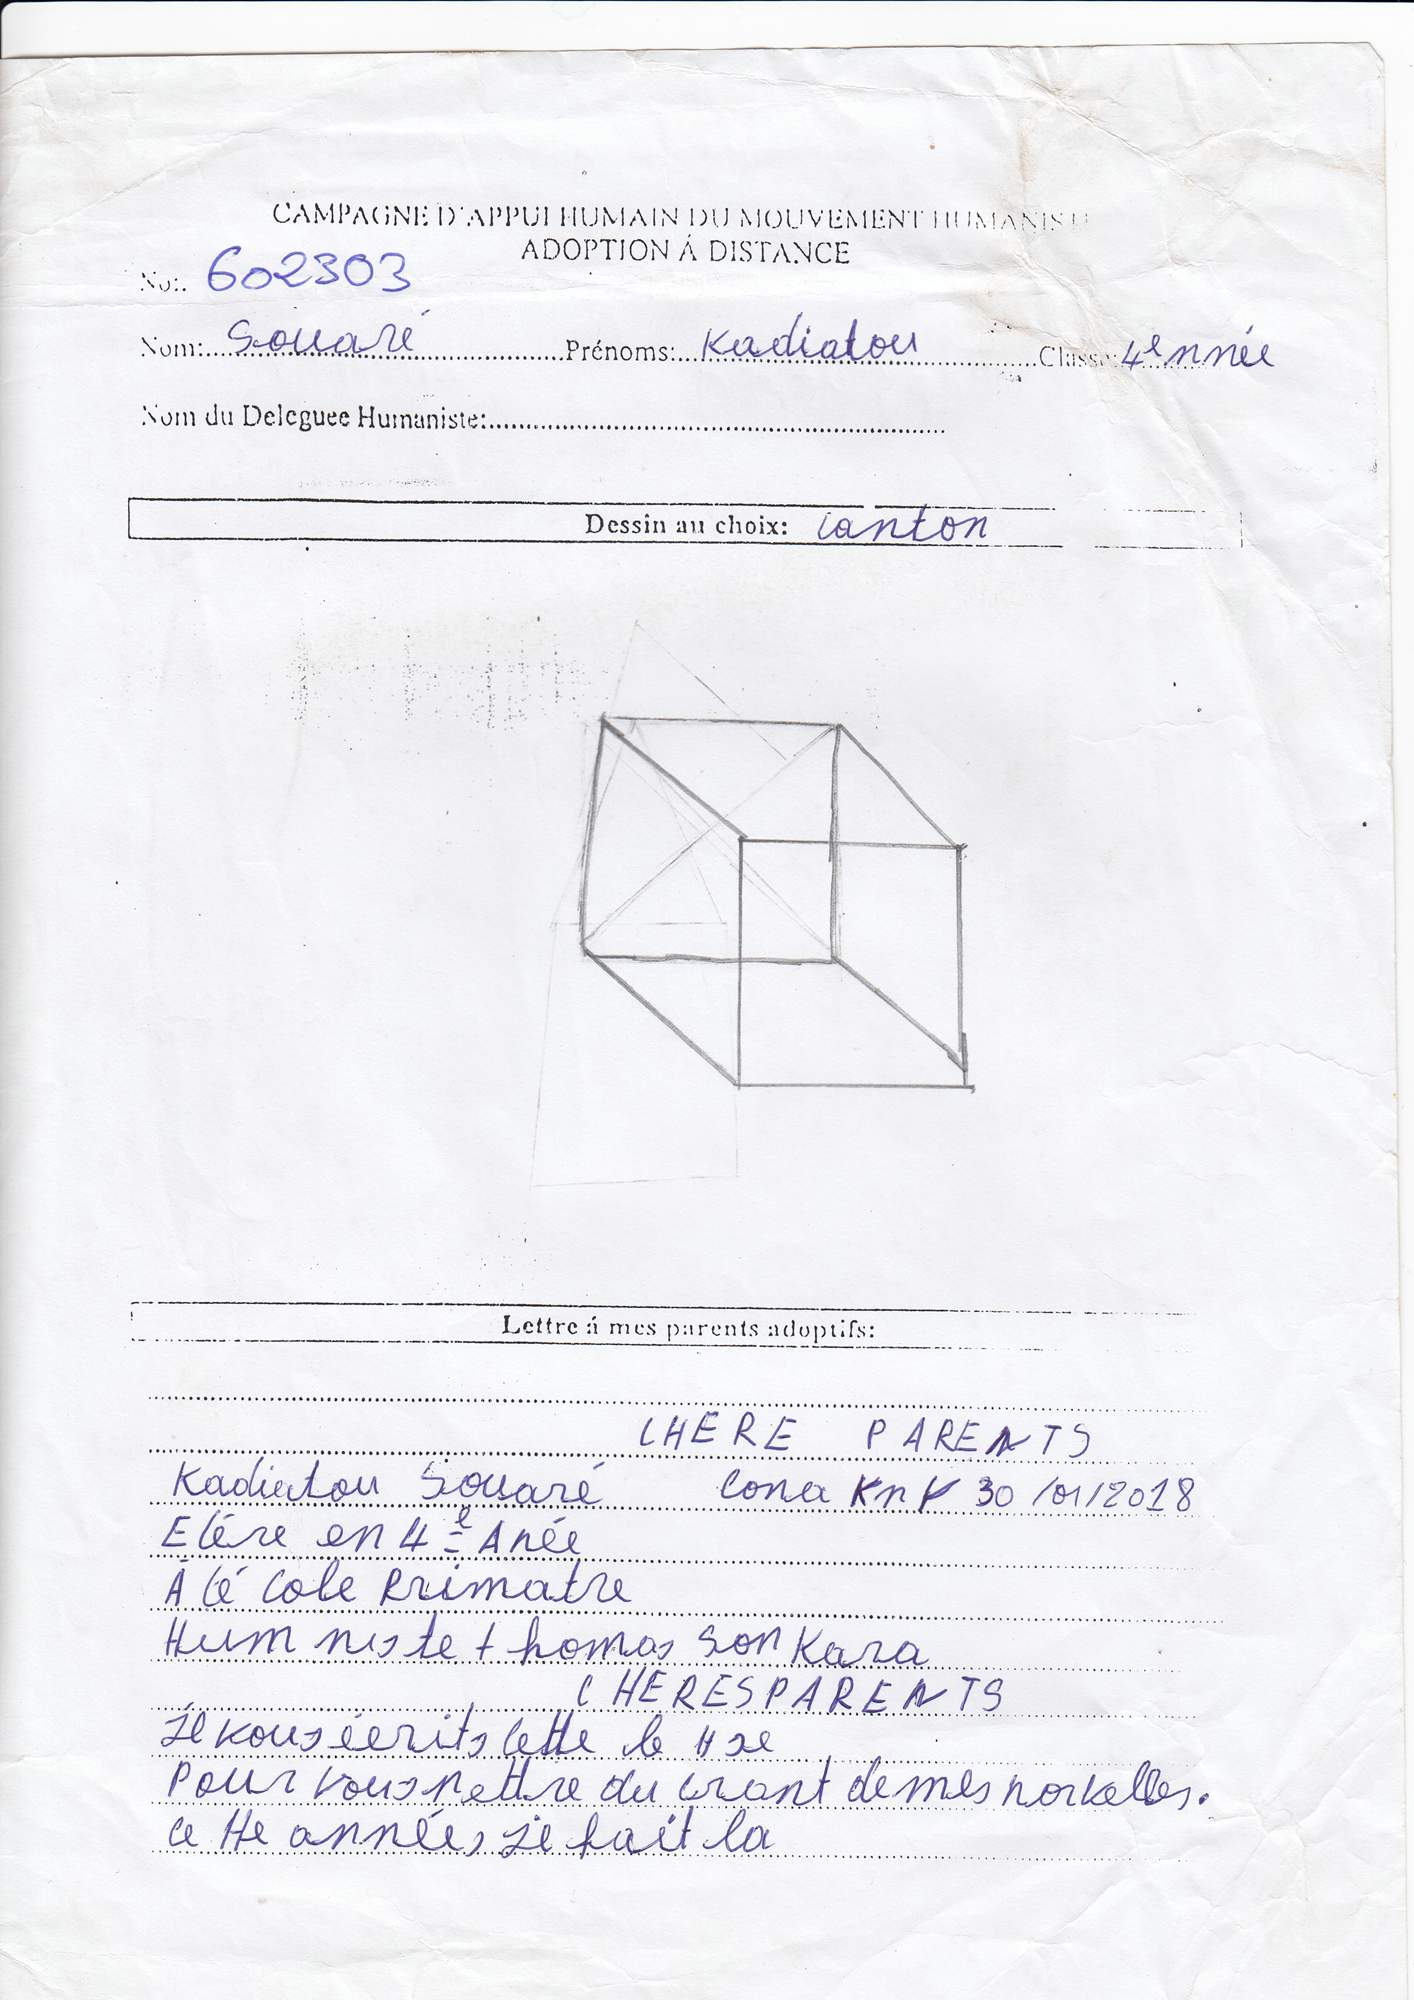 CAMPAGNE D'APPUI HUMAIN DU MOUVEMENT HUMANIST
ADOPTION Á DISTANCE
No: 602303
Nom: Souaré Prénoms: Kadiatou Classe: 4e nnée
Nom du Deleguee Humaniste:
Dessin au choix: Canton
Lettre á mes parents adoptifs:
CHERE PARENTS
Kadiatou Souaré Cona KnY 30/01/2018
Elére en 4e Anée
À lé Cole Primatre
Hum niste thomas Son Kara
CHERESPARENTS
Je vous écrits lette le
Pour vous mettre du crant de mes norvelles.
Ce tte années je fait la